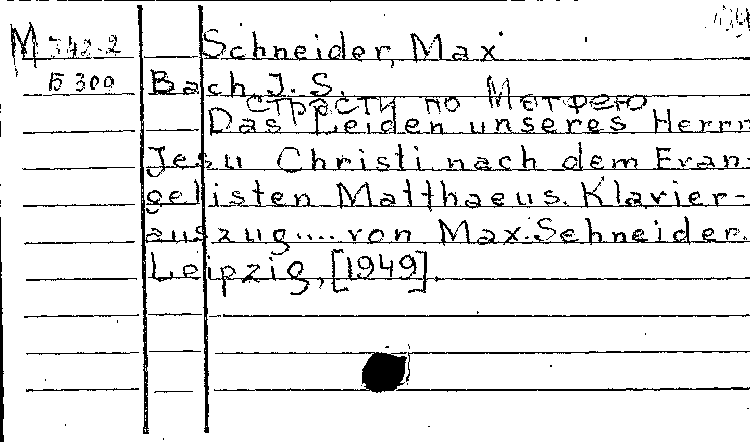 М 342-2 Schneider, Max
Б 300 Bach, J. S.
страсти по Матфею
Das Leiden unseres Herrn
Jesu Christi nach dem Evan-
gelisten Matthaeus. Klavier-
auszug.... von Max Schneider.
Leipzig, [1949].